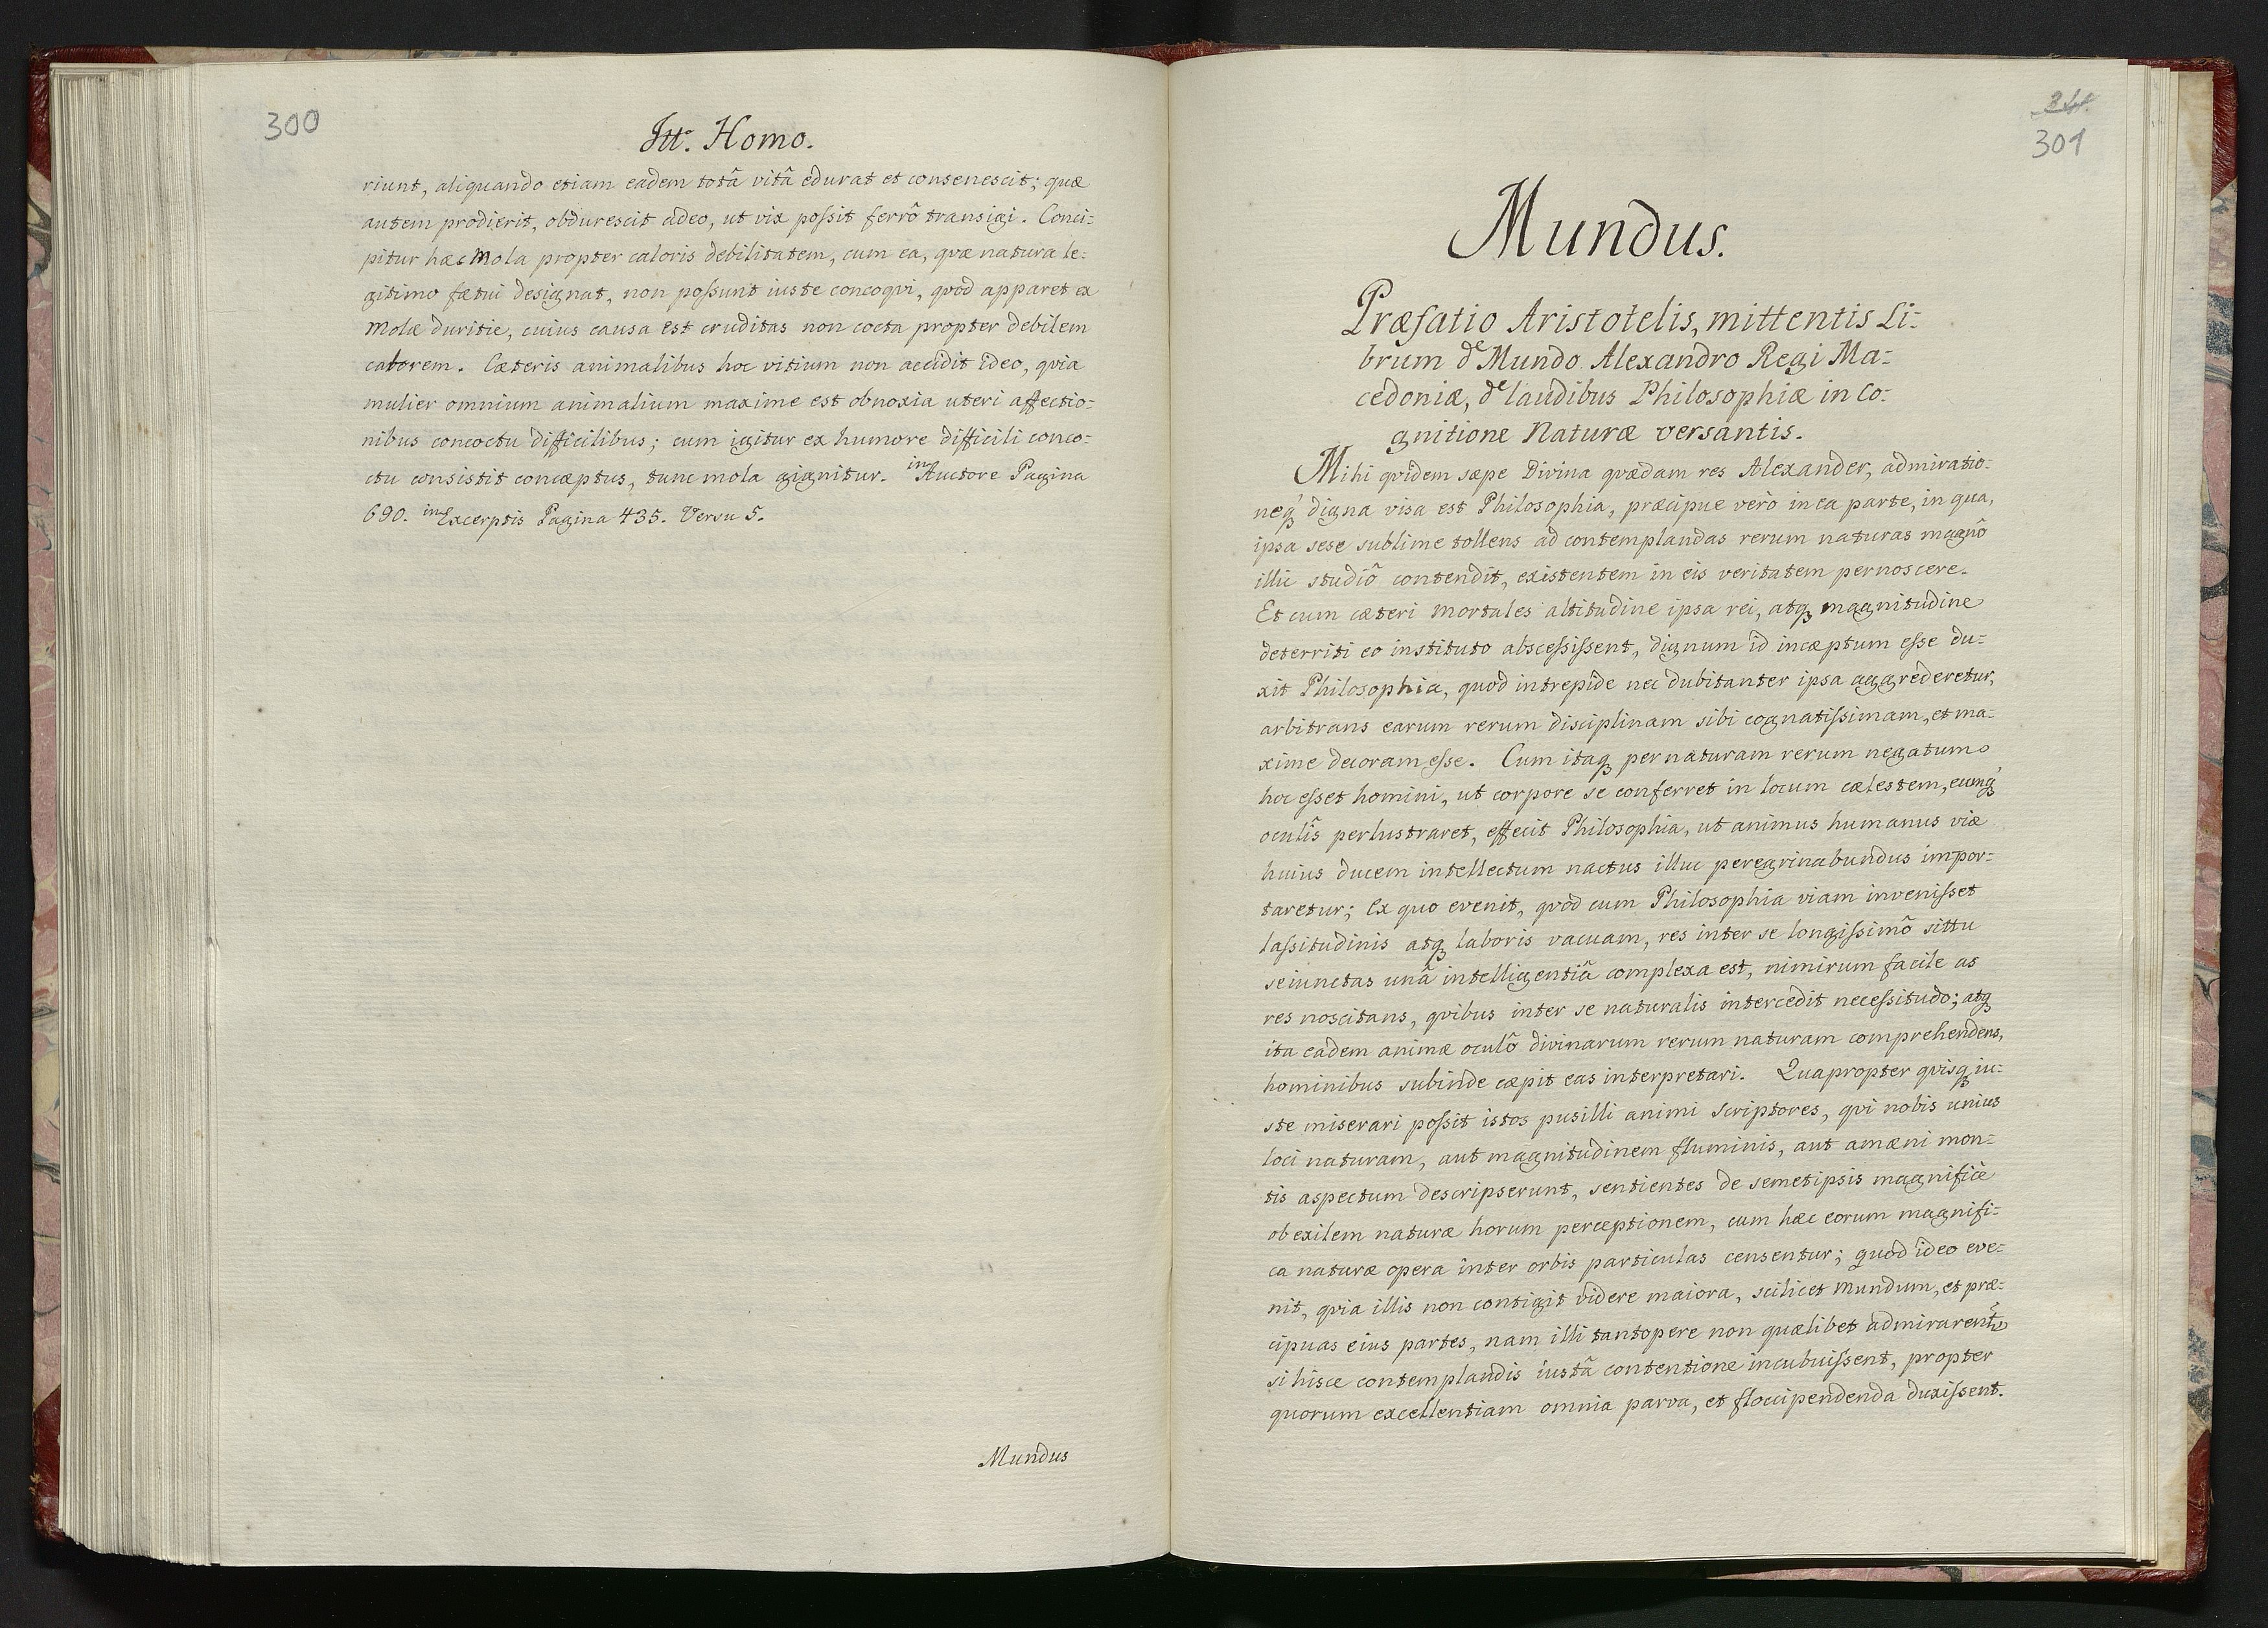 300
Itt. Homo.
riunt, aliquando etiam eadem totâ vitâ edurat et consenescit; quæ
autem prodierit, obdurescit adeo, ut vix poſsit ferrô transigi. Conci-
pitur hæc Mola propter caloris debilitatem, cum ea, quæ natura le-
gitimo fœtui designat, non poſsunt iuste concoqvi, qvod apparet ex
Molæ duritie, cuius causa est cruditas non cocta propter debilem
calorem. Cæteris animalibus hoc vitium non accidit ideo, qvia
mulier omnium animalium maxime est obnoxia uteri affectio-
nibus concoctu difficilibus; cum igitur ex humore difficili conco-
ctu consistit conceptus, tunc mola gignitur. in Auctore Pagina
690. in Excerptis Pagina 435. Versu 5.
Mundus
301
Mundus.
Præfatio Aristotelis, mittentis Li-
brum de Mundo Alexandro Regi Ma-
cedoniæ, de laudibus Philosophiæ in Co-
gnitione Naturæ versantis.
Mihi qvidem sæpe Divina qvædam res Alexander, admiratio-
neq́ digna visa est Philosophia, præcipue verò in ea parte, in qua,
ipsa sese sublime tollens ad contemplandas rerum naturas magnô
illic studiô contendit, existentem in eis veritatem pernoscere.
Et cum cæteri mortales altitudine ipsa rei, atq magnitudine
deterriti eo instituto absceſsiſsent, dignum id incæptum eſse du-
xit Philosophia, quod intrepide nec dubitanter ipsa aggrederetur,
arbitrans earum rerum disciplinam sibi cognatiſsimam, et ma-
xime decoram eſse. Cum itaq per naturam rerum negatum
hoc eſset homini, ut corpore se conferret in locum cælestem, eumq́
oculîs perlustraret, effecit Philosophia, ut animus humanus viæ
huius ducem intellectum nactus illuc peregrinabundus impor-
taretur; Ex quo evenit, qvod cum Philosophia viam inveniſset
laſsitudinis atq laboris vacuam, res inter se longiſsimô sittu
seiunctas unâ intelligentiâ complexa est, nimirum facile as
res noscitans, qvibus inter se naturalis intercedit neceſsitudo; atq
ita eadem animæ oculô divinarum rerum naturam comprehendens,
hominibus subinde cæpit eas interpretari. Quapropter qvisq iu-
ste miserari poſsit istos pusilli animi scriptores, qvi nobis unius
loci naturam, aut magnitudinem fluminis, aut amæni mon-
tis aspectum descripserunt, sentientes de semetipsis magnificè
ob exilem naturæ horum perceptionem, cum hæc eorum magnifi-
ca naturæ opera inter orbis particulas censentur; quod ideo eve-
nit, qvia illis non contigit videre maiora, scilicet Mundum, et præ-
cipuas eius partes, nam illi tantopere non quælibet admirarent
si hisce contemplandis iustâ contentione incubuiſsent, propter
quorum excellentiam omnia parva, et floccipendenda duxiſsent.